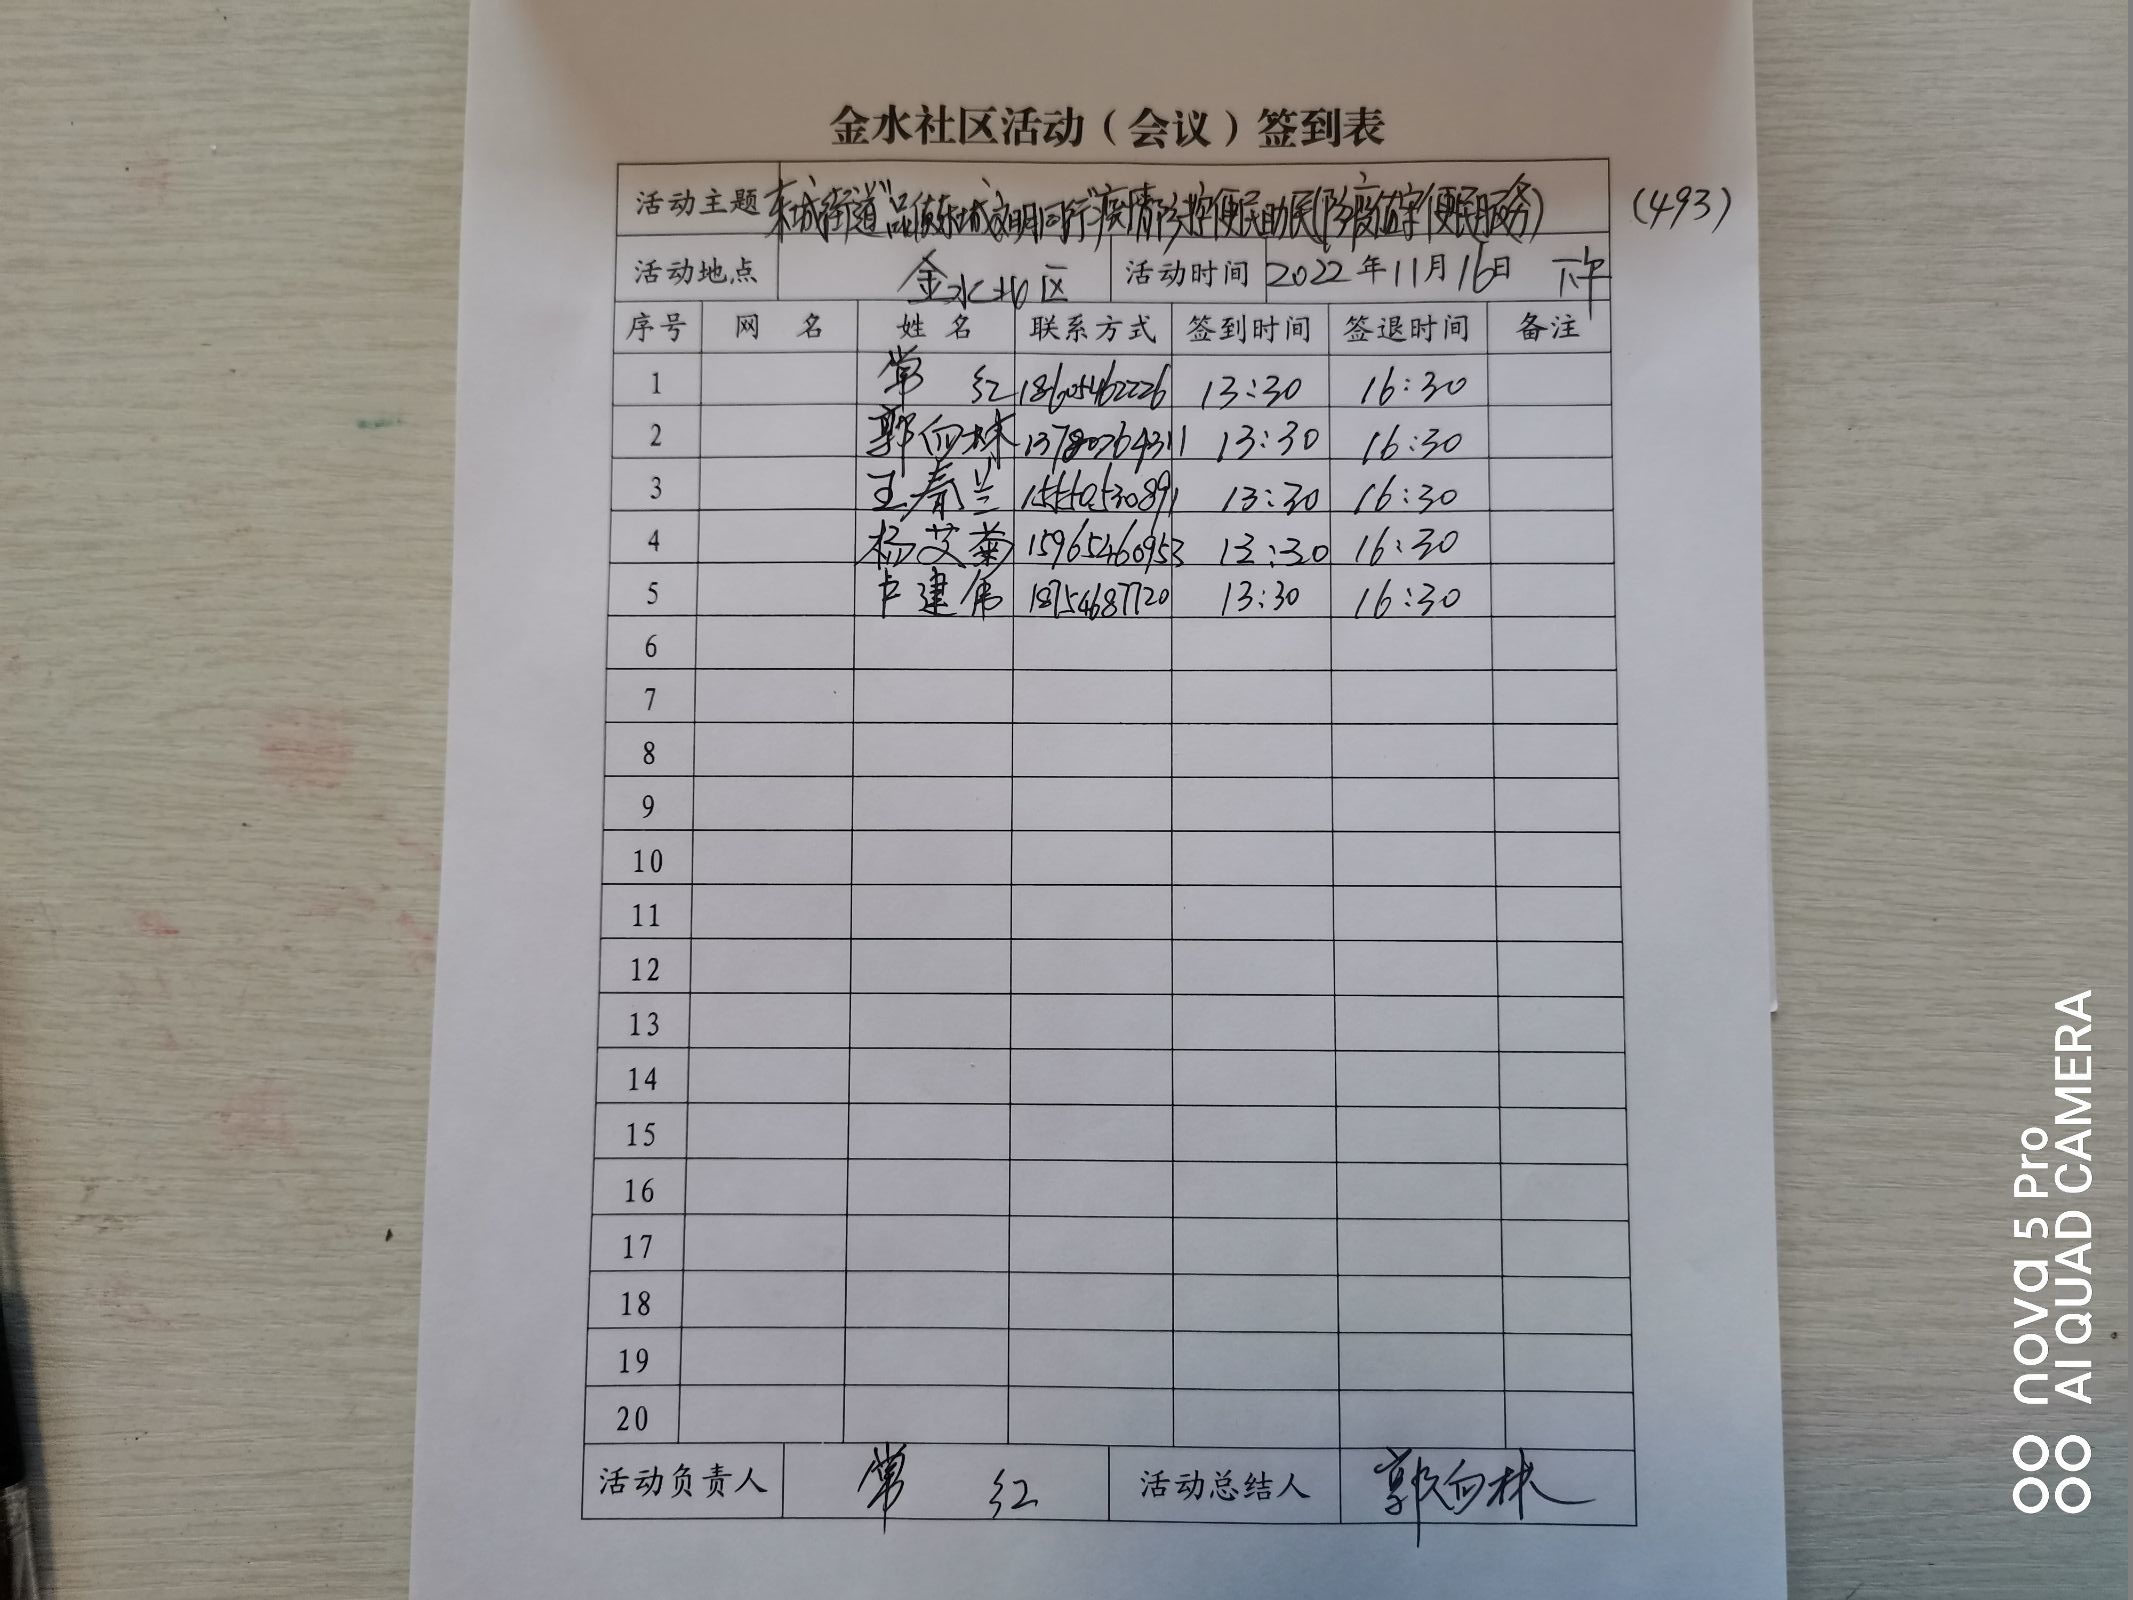 金水社区活动（会议）签到表
活动主题 东城街道"品质东城文明同行"疫情防控便民助民(防疫值守便民服务) (493)
活动地点 金水社区 活动时间 2022年11月16日 下午
序号 网 名 姓 名 联系方式 签到时间 签退时间 备注
1 常 红 18605462226 13:30 16:30
2 郭向林 13780764311 13:30 16:30
3 王春兰 15550530891 13:30 16:30
4 杨艾菊 15965460953 13:30 16:30
5 卢建伟 18754687720 13:30 16:30
6
7
8
9
10
11
12
13
14
15
16
17
18
19
20
活动负责人 常 红 活动总结人 郭向林
nova 5 Pro
AI QUAD CAMERA